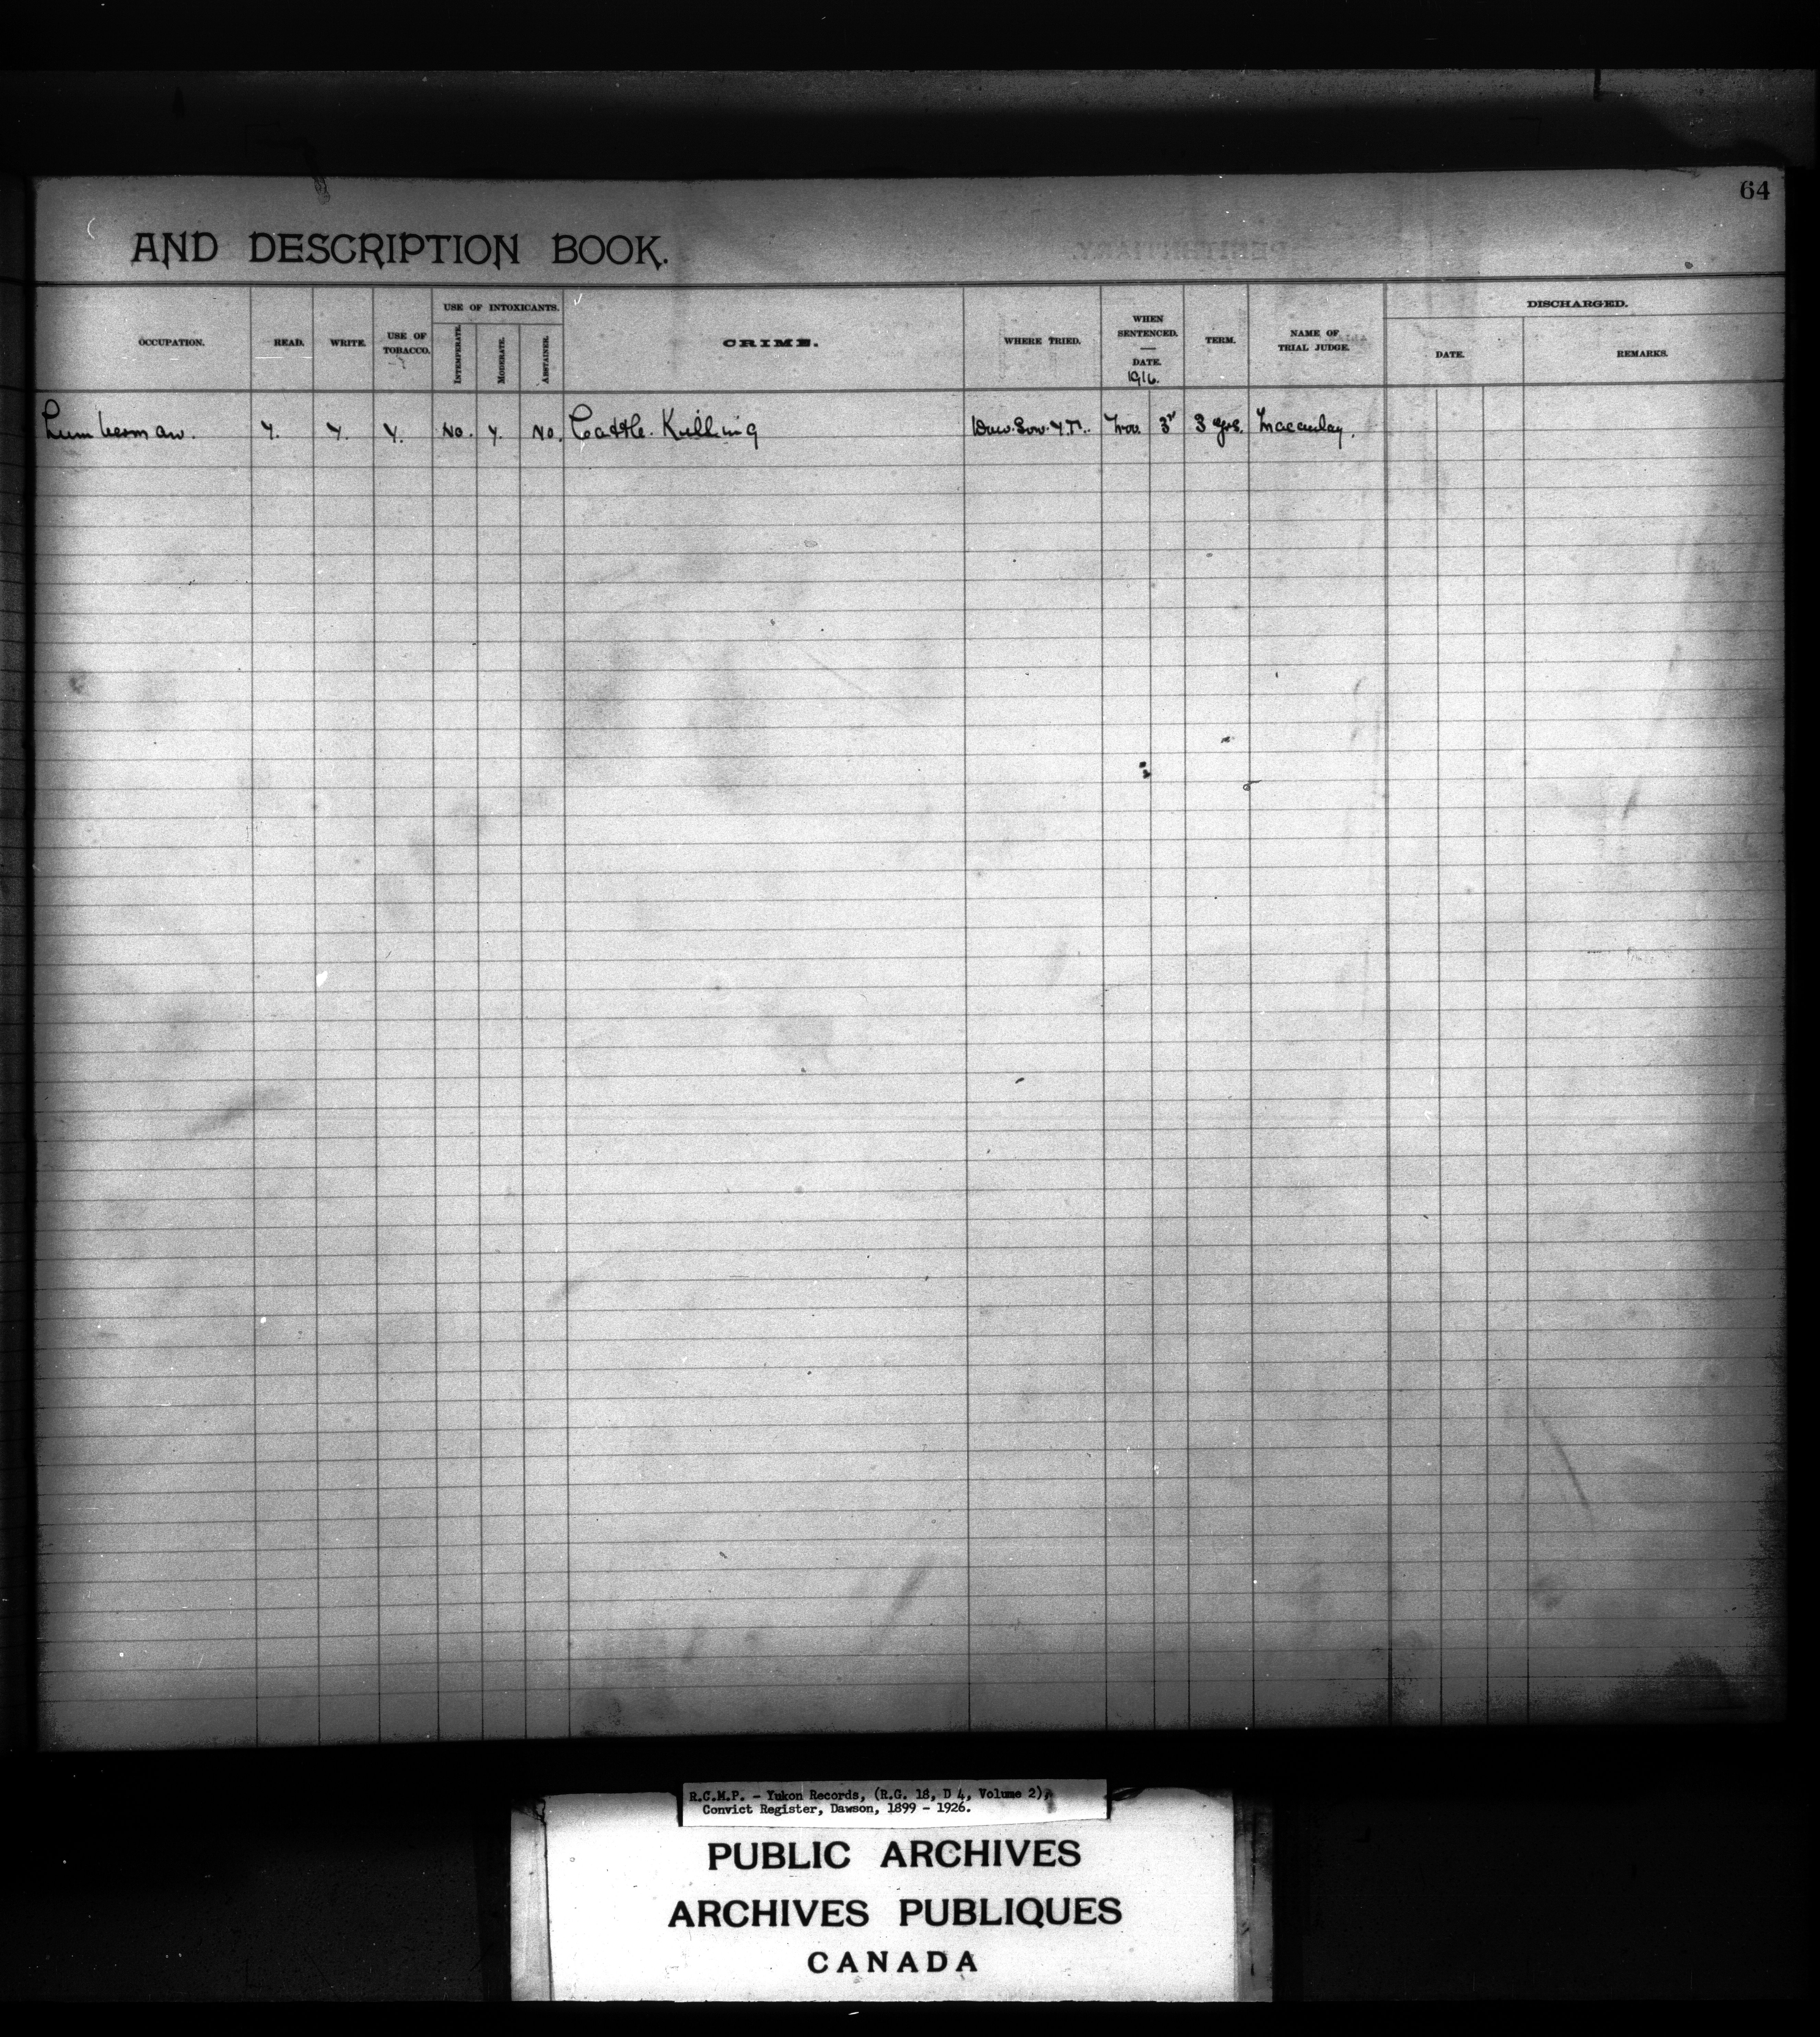 64
AND DESCRIPTION BOOK.
OCCUPATION.
READ.
WRITE.
USE OF
TOBACCO.
USE OF INTOXICANTS.
INTEMPERATE.
MODERATE.
ABSTAINER.
CRIME.
WHERE TRIED.
WHEN
SENTENCED.
DATE.
1916.
TERM.
NAME OF
TRIAL JUDGE.
DISCHARGED.
DATE.
REMARKS.
Lumberman. Y. Y. Y. No. Y. No. Cattle. Killing Daw.Son. Y.T. Nov. 3rd 3 yrs. Macaulay.
R.C.M.P. - Yukon Records, (R.G. 18, D 4, Volume 2),
Convict Register, Dawson, 1899 - 1926.
PUBLIC ARCHIVES
ARCHIVES PUBLIQUES
CANADA